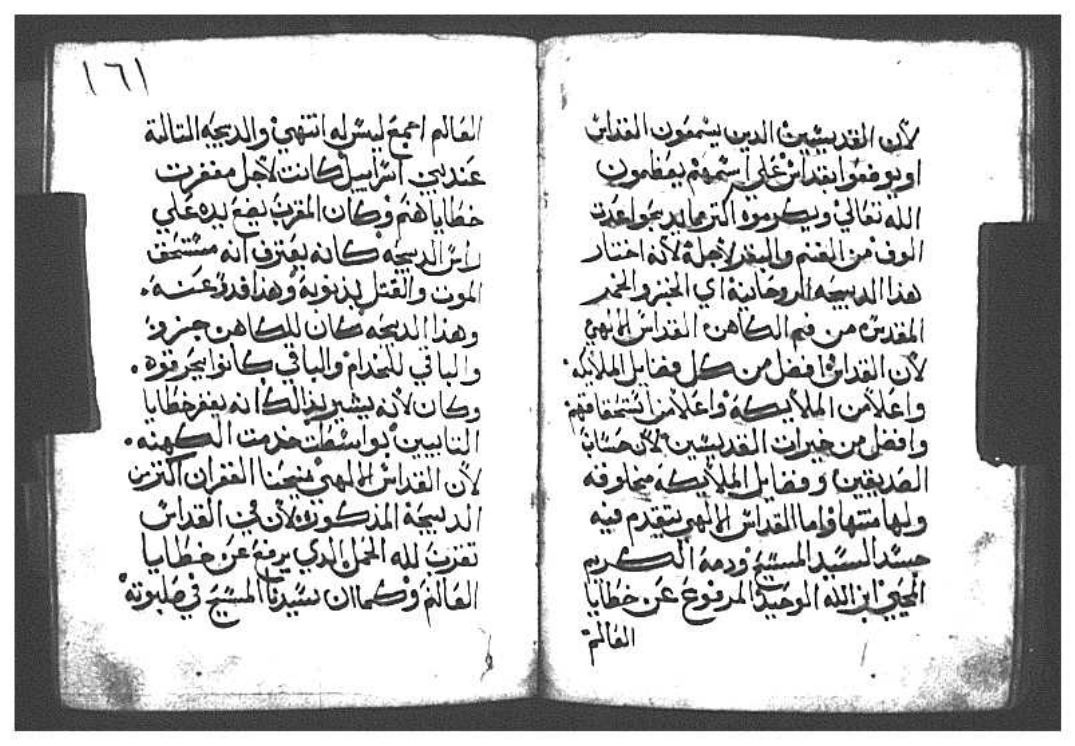 لأن القديسين الدين يسمعون القداس
او يوقفوا بقداس علي اسمهم يعظمون
الله تعالي ويكرموه اكتر مما يدبحوا عدت
الوف من الغنم والبقر لأجله لأنه اختار
هدا الدبيحه الروحانية اي الخبز والخمر
المقدسه من فم الكاهن القداس الالهي
لأن القداس افضل من كل فضايل الملايكه
واعلا من الملايكه واعلا من استحقاقهم
وافضل من خيرات القديسين لأن حسنات
الصديقين وفضايل الملأيكه مخلوقه
ولها منتها واما القداس الالهي يتقدم فيه
جسد السيد المسيح ودمه الكريم
المحيي ابن الله الوحيد المرفوع عن خطايا
العالم
١٦١
العالم اجمع ليس له انتهي والدبيحه التالتة
عند بني اسراييل كانت لأجل مغفرت
خطاياهم وكان المقرب يضع يده علي
راس الدبيحه كانه يعترف انه مستحق
الموت والقتل بدنوبه وهدا فدوٌ عنه.
وهدا الدبيحه كان للكاهن جزو
والباقي للخدام والباقي كانوا يحرقوه.
وكان لأنه يشير بدالك انه يغفر خطايا
التايبين بواسطت خدمت الكهنه.
لأن القداس الالهي يمنحنا الغفران اكتر من
الدبيحة المدكوره لأن في القداس
تقرب لله الحمل الدي يرفع عن خطايا
العالم وكما ان سيدنا المسيح في صلبوته